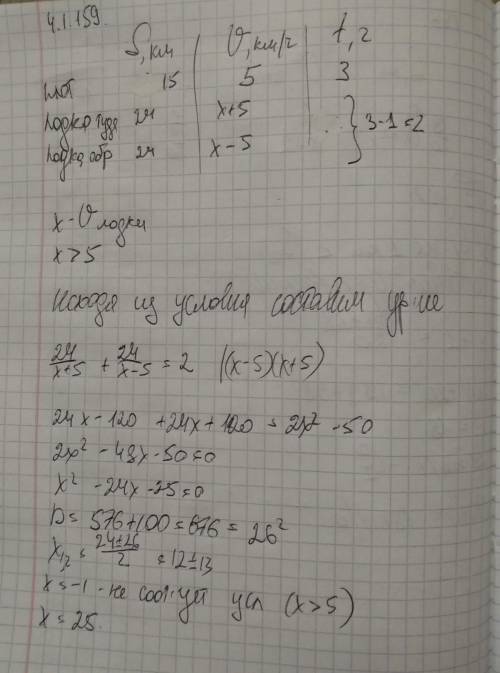 4.1.159.
S, км | V, км/ч | t, ч
плот 15 5 3
лодка туда 24 x+5 } 3-1=2
лодка обр 24 x-5
x - V лодки
x>5
Исходя из условия составим ур-ие
24/(x+5) + 24/(x-5) = 2 |(x-5)(x+5)
24x-120 +24x+120 = 2x² -50
2x² -48x-50=0
x² -24x-25=0
D= 576+100=676= 26²
x₁,₂ = (24±26)/2 =12±13
x=-1 - не соот-ует усл (x>5)
x=25.